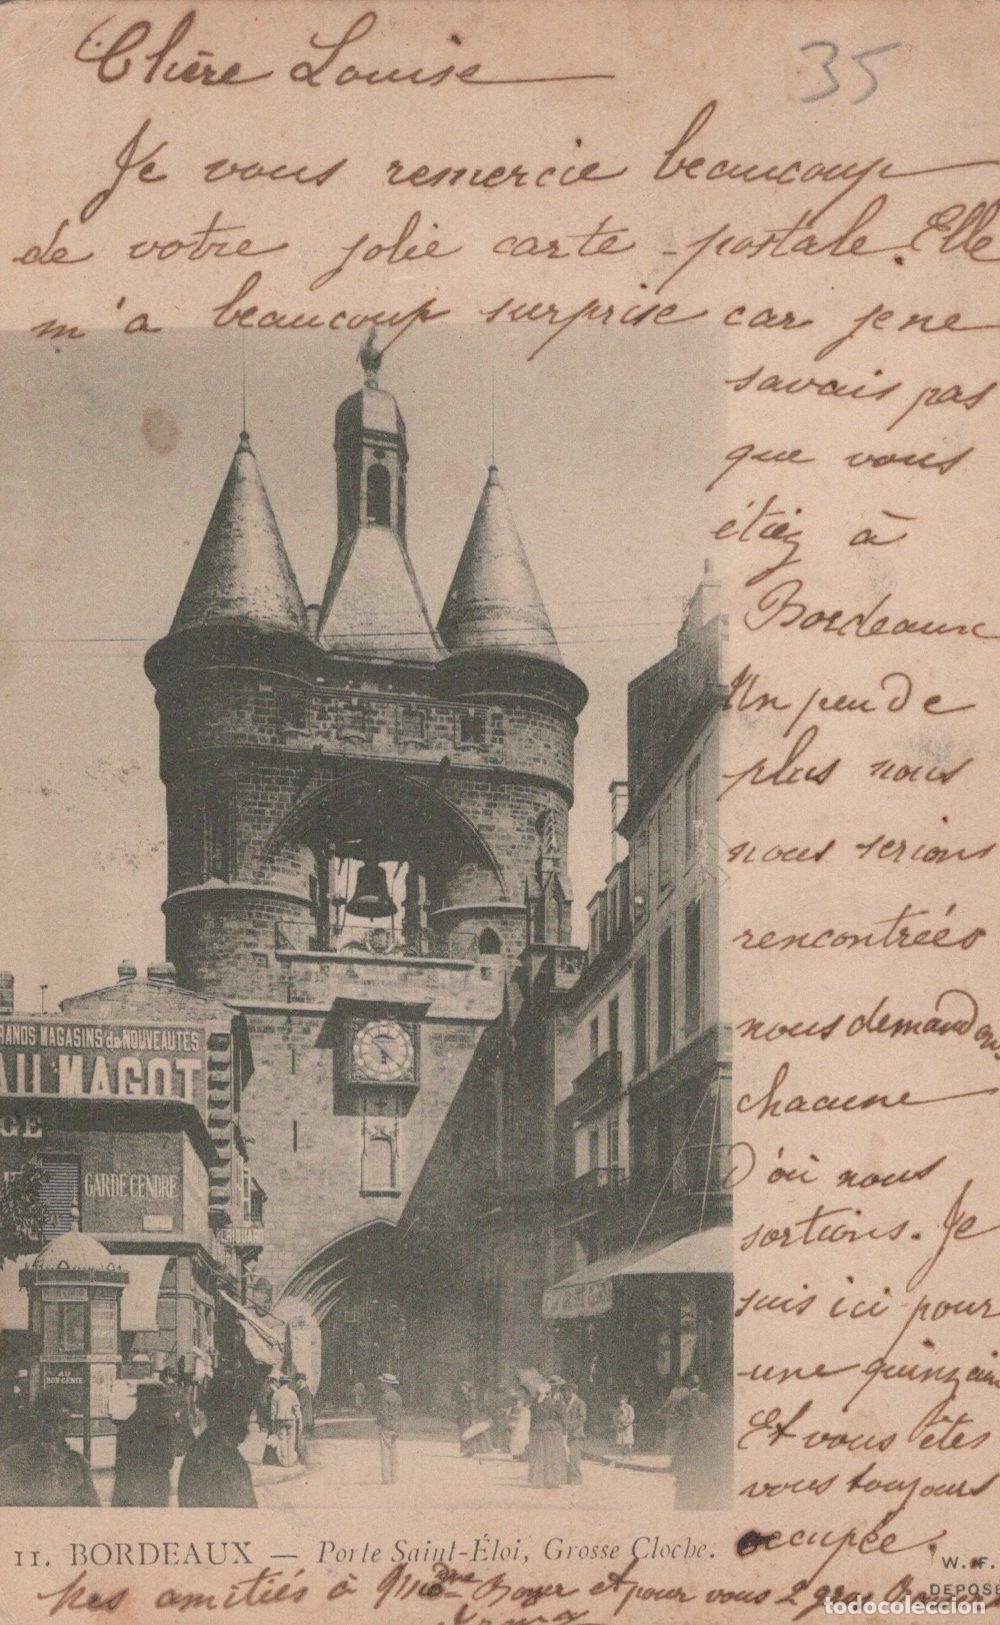 Chère Louise
35
Je vous remercie beaucoup
de votre jolie carte-postale. Elle
m'a beaucoup surprise car je ne
savais pas
que vous
étiez à
Bordeaux
Un peu de
plus nous
nous serions
rencontrées
nous demandant
chacune
d'où nous
sortions. Je
suis ici pour
une quinzaine
Et vous êtes
vous toujours
occupée.
GRANDS MAGASINS de NOUVEAUTÉS
AU MAGOT
GE
GARDE CENDRE
AU
BON GÉNIE
11. BORDEAUX — Porte Saint-Éloi, Grosse Cloche.
W. F.
DEPOSÉ
Mes amitiés à Mme Boyer et pour vous 2 gros
todocoleccion